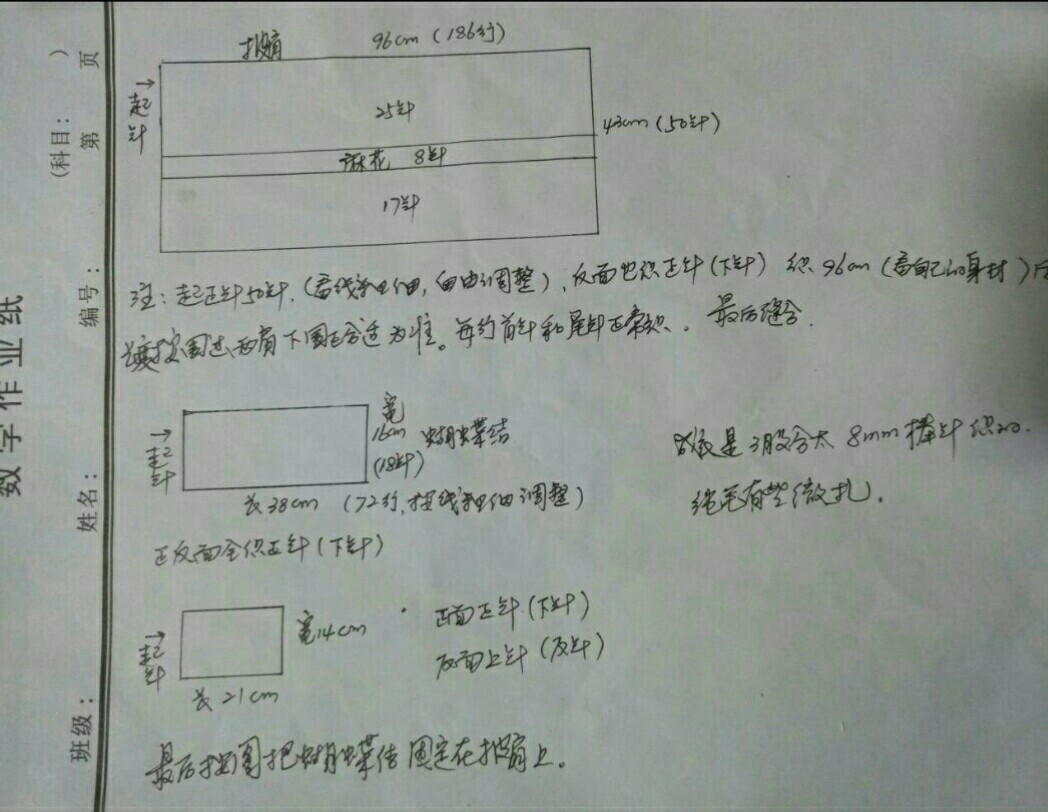 数学作业纸
(科目: ) 第 页
编号:
姓名:
班级:
披肩 96cm (186行)
起针
25针
麻花 8针
17针
43cm (50针)
注: 起正针50针. (看线粗细, 自由调整), 反面也织正针(下针) 织 96cm (看自己的身材)
长度按围过两肩下围合适为准。每行首针和尾针正常织。最后缝合.
起针
宽
16cm 蝴蝶结
(18针)
长38cm (72行, 按线粗细调整)
正反面全织正针(下针)
我是3股合太 8mm 棒针织的.
纯毛有些微扎.
起针
宽14cm
长21cm
正面正针(下针)
反面上针(反针)
最后按图把蝴蝶结固定在披肩上。